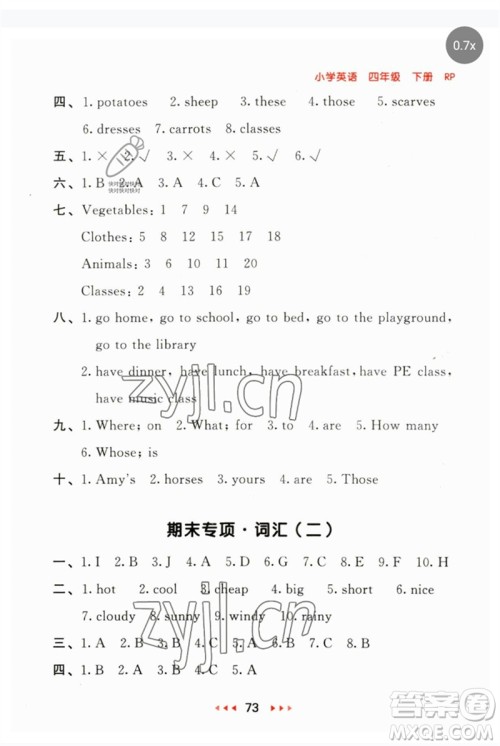 0.7x
小学英语 四年级 下册 RP
四、1. potatoes 2. sheep 3. these 4. those 5. scarves
6. dresses 7. carrots 8. classes
五、1. × 2. √ 3. × 4. √ 5. √
六、1. B 2. A 3. A 4. B 5. A
快对快对快对
快对快对快对
七、Vegetables: 1 7 9 14
Clothes: 5 8 12 15 16
Animals: 3 6 10 11 13
Classes: 2 4
八、1. go home, go to school, go to bed, go to the playground,
go to the library
2. have dinner, have lunch, have breakfast, have PE class,
have music class
zyjl.cn
九、1. Where; on 2. What; for 3. to 4. at 5. How many
6. Whose; is
十、1. Amy's 2. horses 3. yours 4. are 5. Those
期末专项·词汇(二)
一、1. I 2. B 3. J 4. A 5. E 6. C 7. D 8. G 9. F 10. H
二、1. hot 2. cool 3. cheap 4. big 5. short 6. nice
7. cloudy 8. sunny 9. windy 10. rainy
zyjl.cn
三、1. A 2. B 3. B 4. C 5. A 6. A 7. B 8. B
四、1. A 2. B 3. C 4. C 5. A
73
答案圈
MXQE.COM